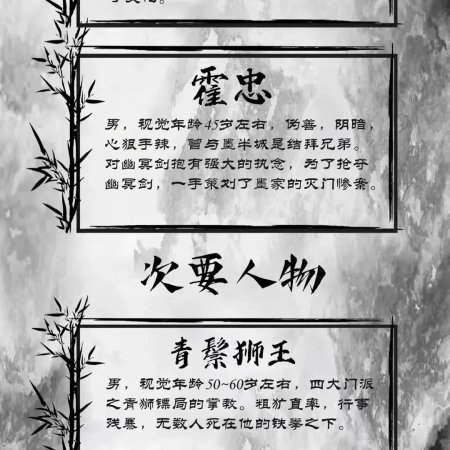 霍忠
男，视觉年龄45岁左右，伪善，阴暗，
心狠手辣，曾与墨半城是结拜兄弟。
对幽冥剑抱有强大的执念，为了抢夺
幽冥剑，一手策划了墨家的灭门惨案。
次要人物
青鬃狮王
男，视觉年龄50~60岁左右，四大门派
之青狮镖局的掌教。粗犷直率，行事
残暴，无数人死在他的铁拳之下。